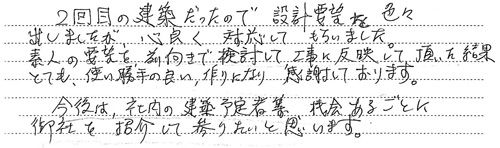 2回目の建築だったので 設計要望を 色々
出しましたが、心良く 対応して もらいました。
素人の要望を、前向きで検討して工事に反映して頂いた結果
とても、使い勝手の良い、作りになり 感謝しております。
今後は、社内の建築予定者等 機会あるごとに
御社を 紹介して参りたいと思います。